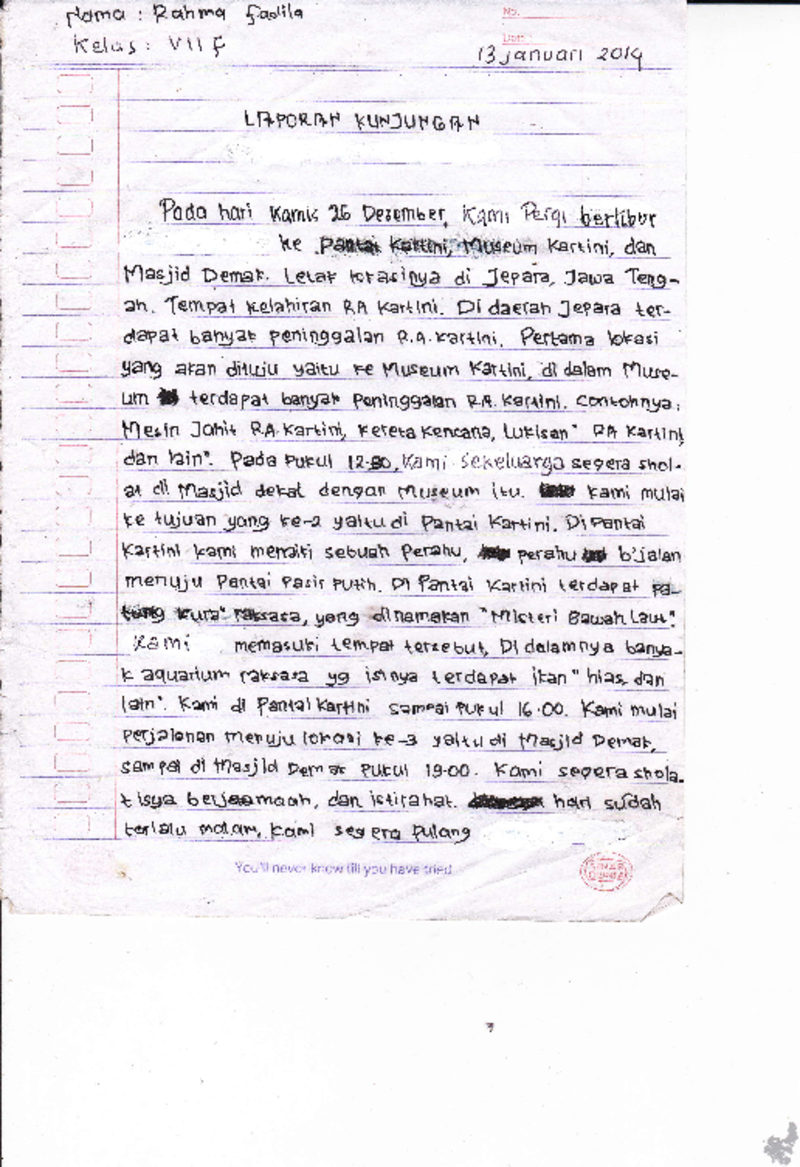 Nama : Rahma Fadila
No.
Kelas : VII F
Date:
13 januari 2014
LAPORAN KUNJUNGAN
Pada hari Kamis 26 Desember, Kami Pergi berlibur
ke Pantai Kartini, Museum Kartini, dan
Masjid Demak. Letak lokasinya di Jepara, Jawa Teng-
ah. Tempat kelahiran RA Kartini. Di daerah Jepara ter-
dapat banyak peninggalan R.A. Kartini. Pertama lokasi
yang akan dituju yaitu ke Museum Kartini, di dalam Muse-
um terdapat banyak Peninggalan R.A. Kartini. Contohnya :
Mesin Jahit R.A. Kartini, Kereta Kencana, Lukisan" RA Kartini
dan lain". Pada Pukul 12.30, Kami sekeluarga segera shol-
at di Masjid dekat dengan Museum itu. Kami mulai
ke tujuan yang ke-2 yaitu di Pantai Kartini. Di Pantai
Kartini kami menaiki sebuah Perahu, perahu b'jalan
menuju Pantai Pasir Putih. Di Pantai Kartini terdapat pa-
tung kura" raksasa, yang dinamakan "Misteri Bawah Laut".
Kami memasuki tempat tersebut, Di dalamnya banya-
k aquarium raksasa yg isinya terdapat ikan" hias, dan
lain". Kami di Pantai Kartini sampai Pukul 16.00. Kami mulai
Perjalanan menuju lokasi ke-3 yaitu di Masjid Demak,
sampai di Masjid Demak Pukul 19.00. Kami segera shola-
t isya berjaamaah, dan istirahat. hari sudah
terlalu malam, kami segera Pulang
You'll never know till you have tried